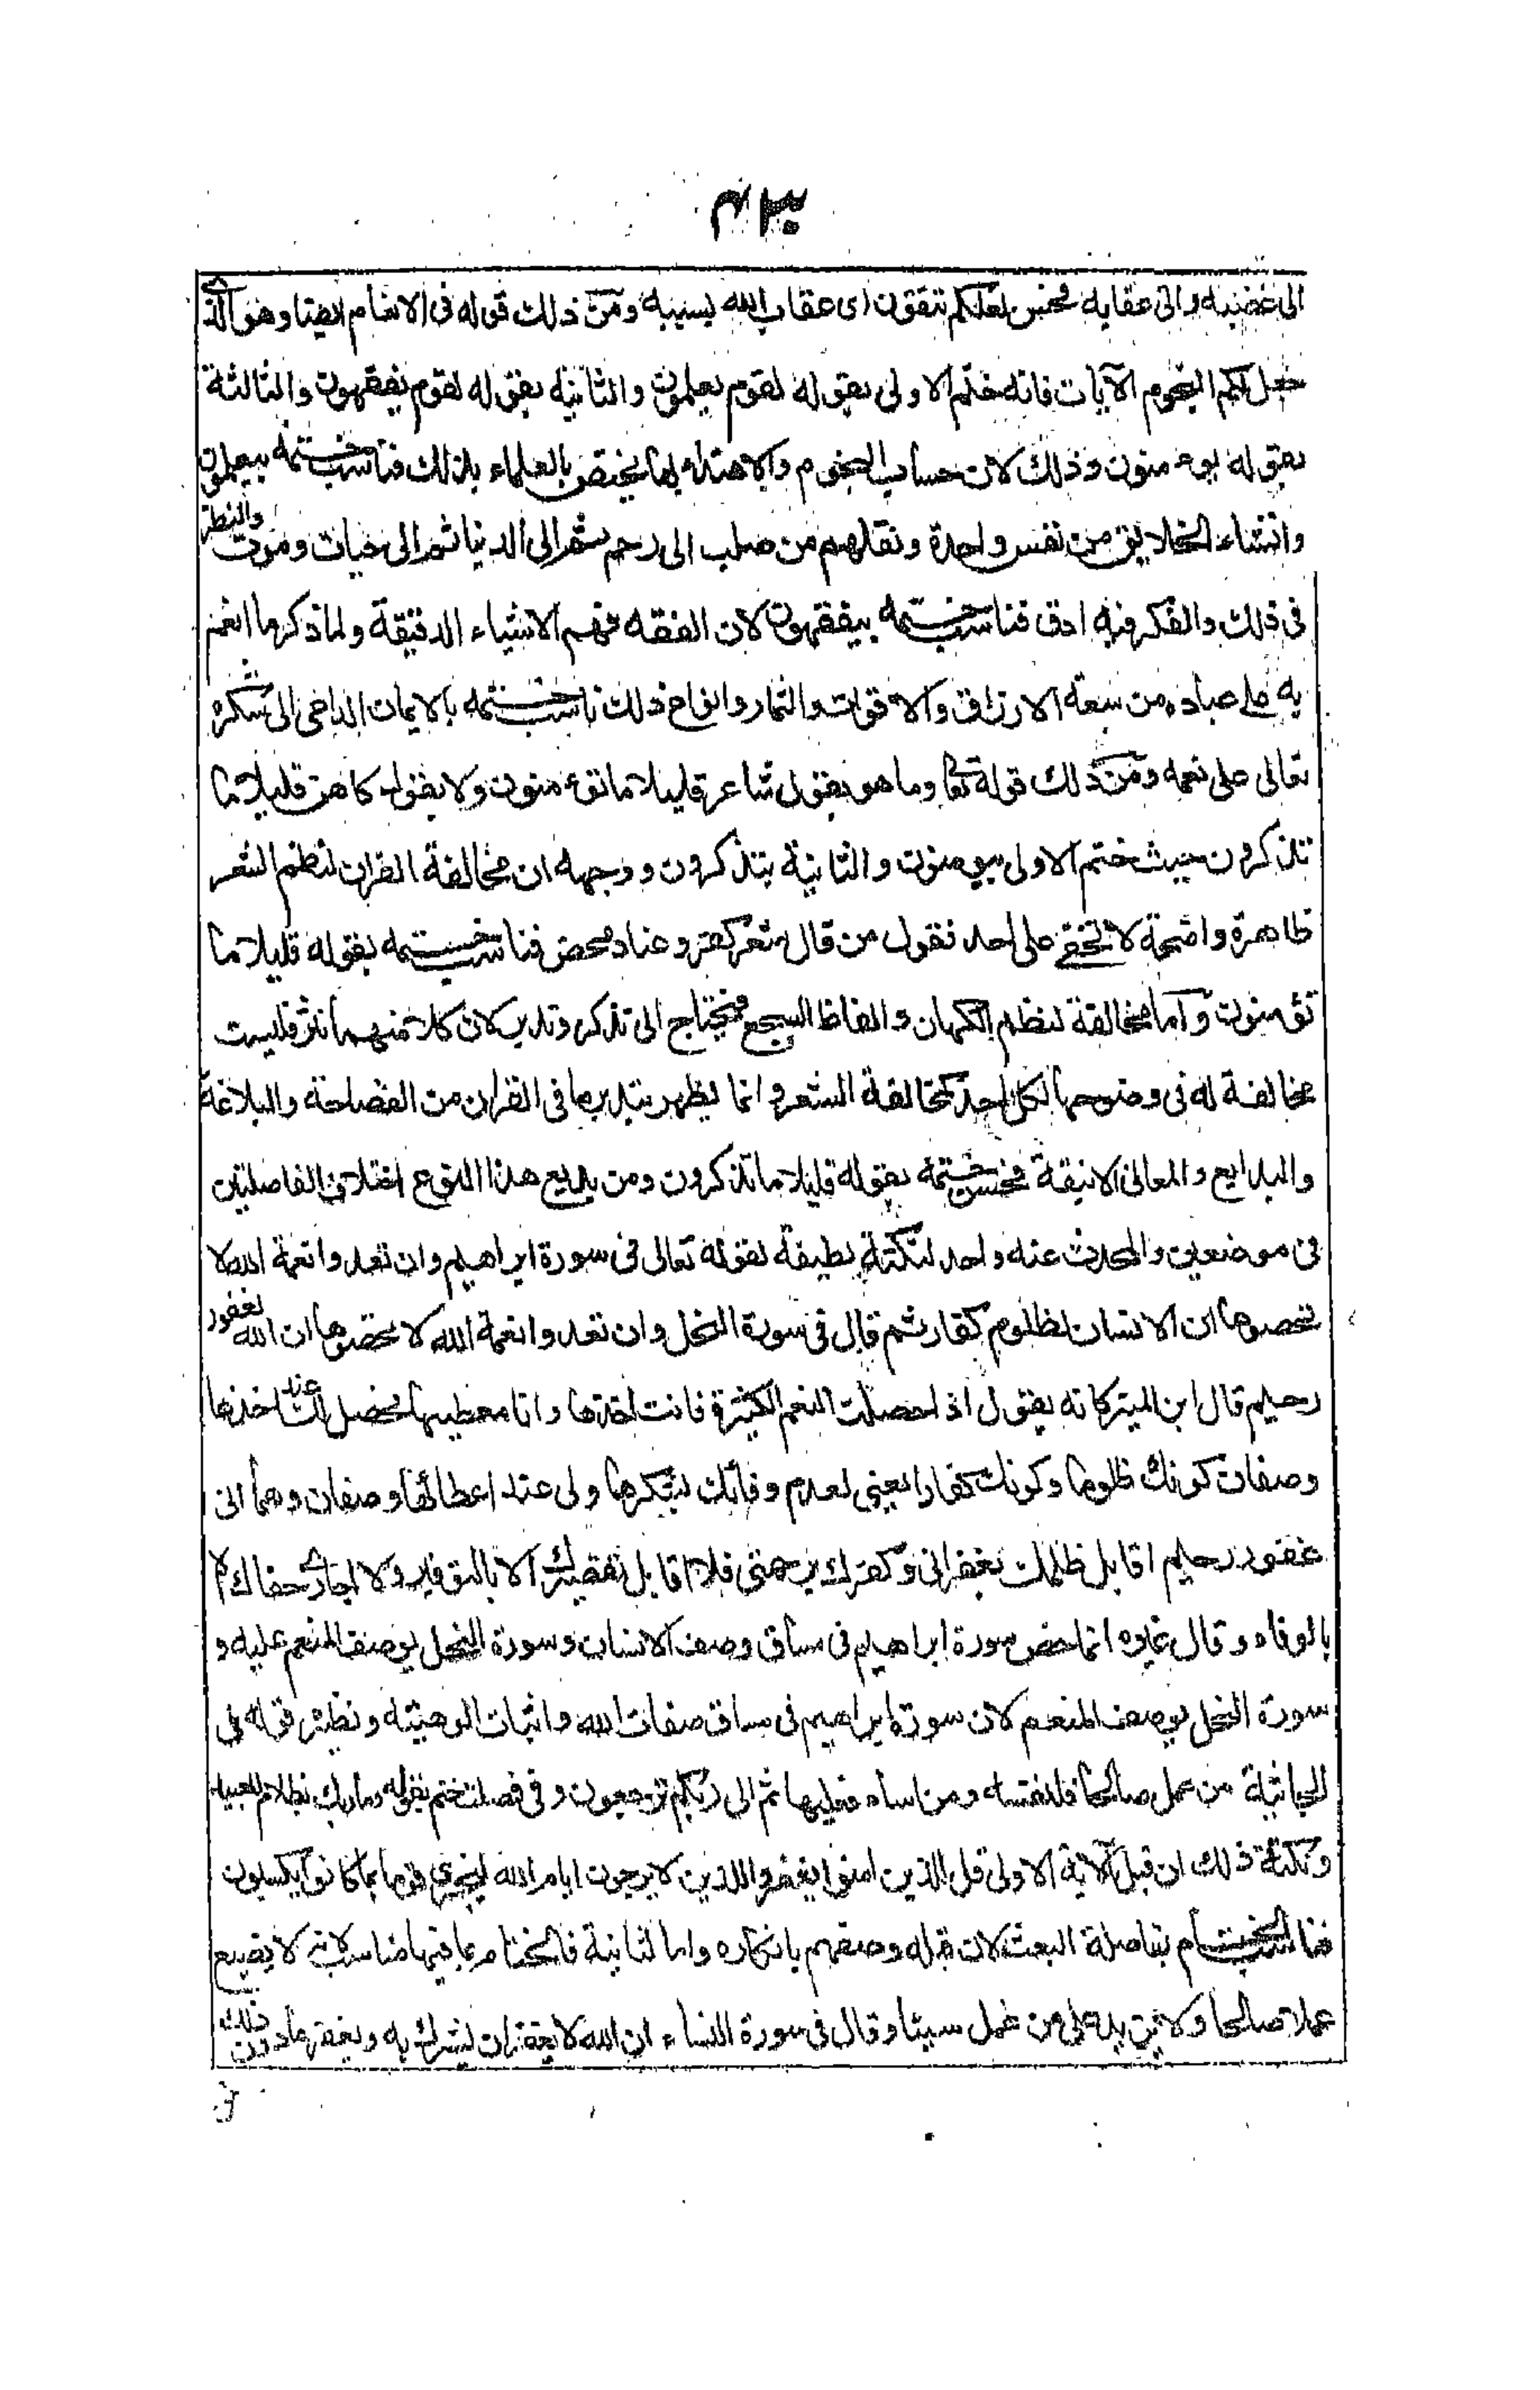 ٤٢٣
الى غضبه والى عقابه فحسن لعلكم تتقون اى عقاب الله بسببه ومن ذلك قوله فى الانعام ايضا وهو الذى
جعل لكم النجوم الآيات فانه ختم الاولى بقوله لقوم يعلمون والثانية بقوله لقوم يفقهون والثالثة
بقوله يؤمنون وذلك لان حساب النجوم والاهتداء بها يختص بالعلماء بذلك فناسب ختمه بيعلمون
وانشاء الخلايق من نفس واحدة ونقلهم من صلب الى رحم ثم الى الدنيا ثم الى حيات وموت والنظر
فى ذلك والفكر فيه ادق فناسب ختمه بيفقهون لان الفقه فهم الاشياء الدقيقة ولما ذكر ما انعم
به على عباده من سعة الارزاق والاقوات والثمار وانواع ذلك ناسب ختمه بالايمان الداعى الى شكره
تعالى على نعمه ومن ذلك قوله تعا وما هو بقول شاعر قليلا ما تؤمنون ولا بقول كاهن قليلا ما
تذكرون حيث ختم الاولى بيومنون والثانية بتذكرون ووجهه ان مخالفة القران لنظم الشعر
ظاهرة واضحة لا تخفى على احد فقول من قال شعر كفر وعناد محض فناسب ختمه بقوله قليلا ما
تؤمنون واما مخالفة لنظم الكهان والفاظ السجع فيحتاج الى تذكر وتدبر لان كلا منهما نثر فليست
مخالفة له فى وضوحها لكل احد كمخالفة الشعر وانما يظهر بتدبر ما فى القران من الفصاحة والبلاغة
والبدايع والمعانى الانيقة فحسن ختمه بقوله قليلا ما تذكرون ومن بديع هذا النوع اختلاف الفاصلتين
فى موضعين والمحدث عنه واحد لنكتة لطيفة لقوله تعالى فى سورة ابراهيم وان تعدوا نعمة الله لا
تحصوها ان الانسان لظلوم كفار ثم قال فى سورة النحل وان تعدوا نعمة الله لا تحصوها ان الله لغفور
رحيم قال ابن المنير كانه يقول اذا حصلت النعم الكثيرة فانت اخذها وانا معطيها فحصل لك عند اخذها
وصفان كونك ظلوما وكونك كفارا يعنى لعدم وفائك لشكرها ولى عند اعطائها وصفان وهما انى
غفور رحيم اقابل ظلمك بغفرانى وكفرك برحمتى فلا اقابل تقصيرك الا بالتوفير ولا اجازى جفاك الا
بالوفاء وقال غيره انما خص سورة ابراهيم فى مساق وصف الانسان وسورة النحل بوصف المنعم عليه و
سورة النحل بوصف المنعم لان سورة ابراهيم فى مساق صفات الله واثبات الوهيته ونظيره قوله فى
الجاثية من عمل صالحا فلنفسه ومن اساء فعليها ثم الى ربكم ترجعون وفى فصلت ختم بقوله وما ربك بظلام للعبيد
ونكتة ذلك ان قبل الآية الاولى قل للذين امنوا يغفروا للذين لا يرجون ايام الله ليجزى قوما بما كانوا يكسبون
فناسب الختام بفاصلة البعث لان قبله وصفهم بانكاره واما الثانية فالختام بما فيها مناسب لانه لا يضيع
عملا صالحا ولا يزيد على من عمل سيئا وقال فى سورة النساء ان الله لا يغفر ان يشرك به ويغفر ما دون ذلك